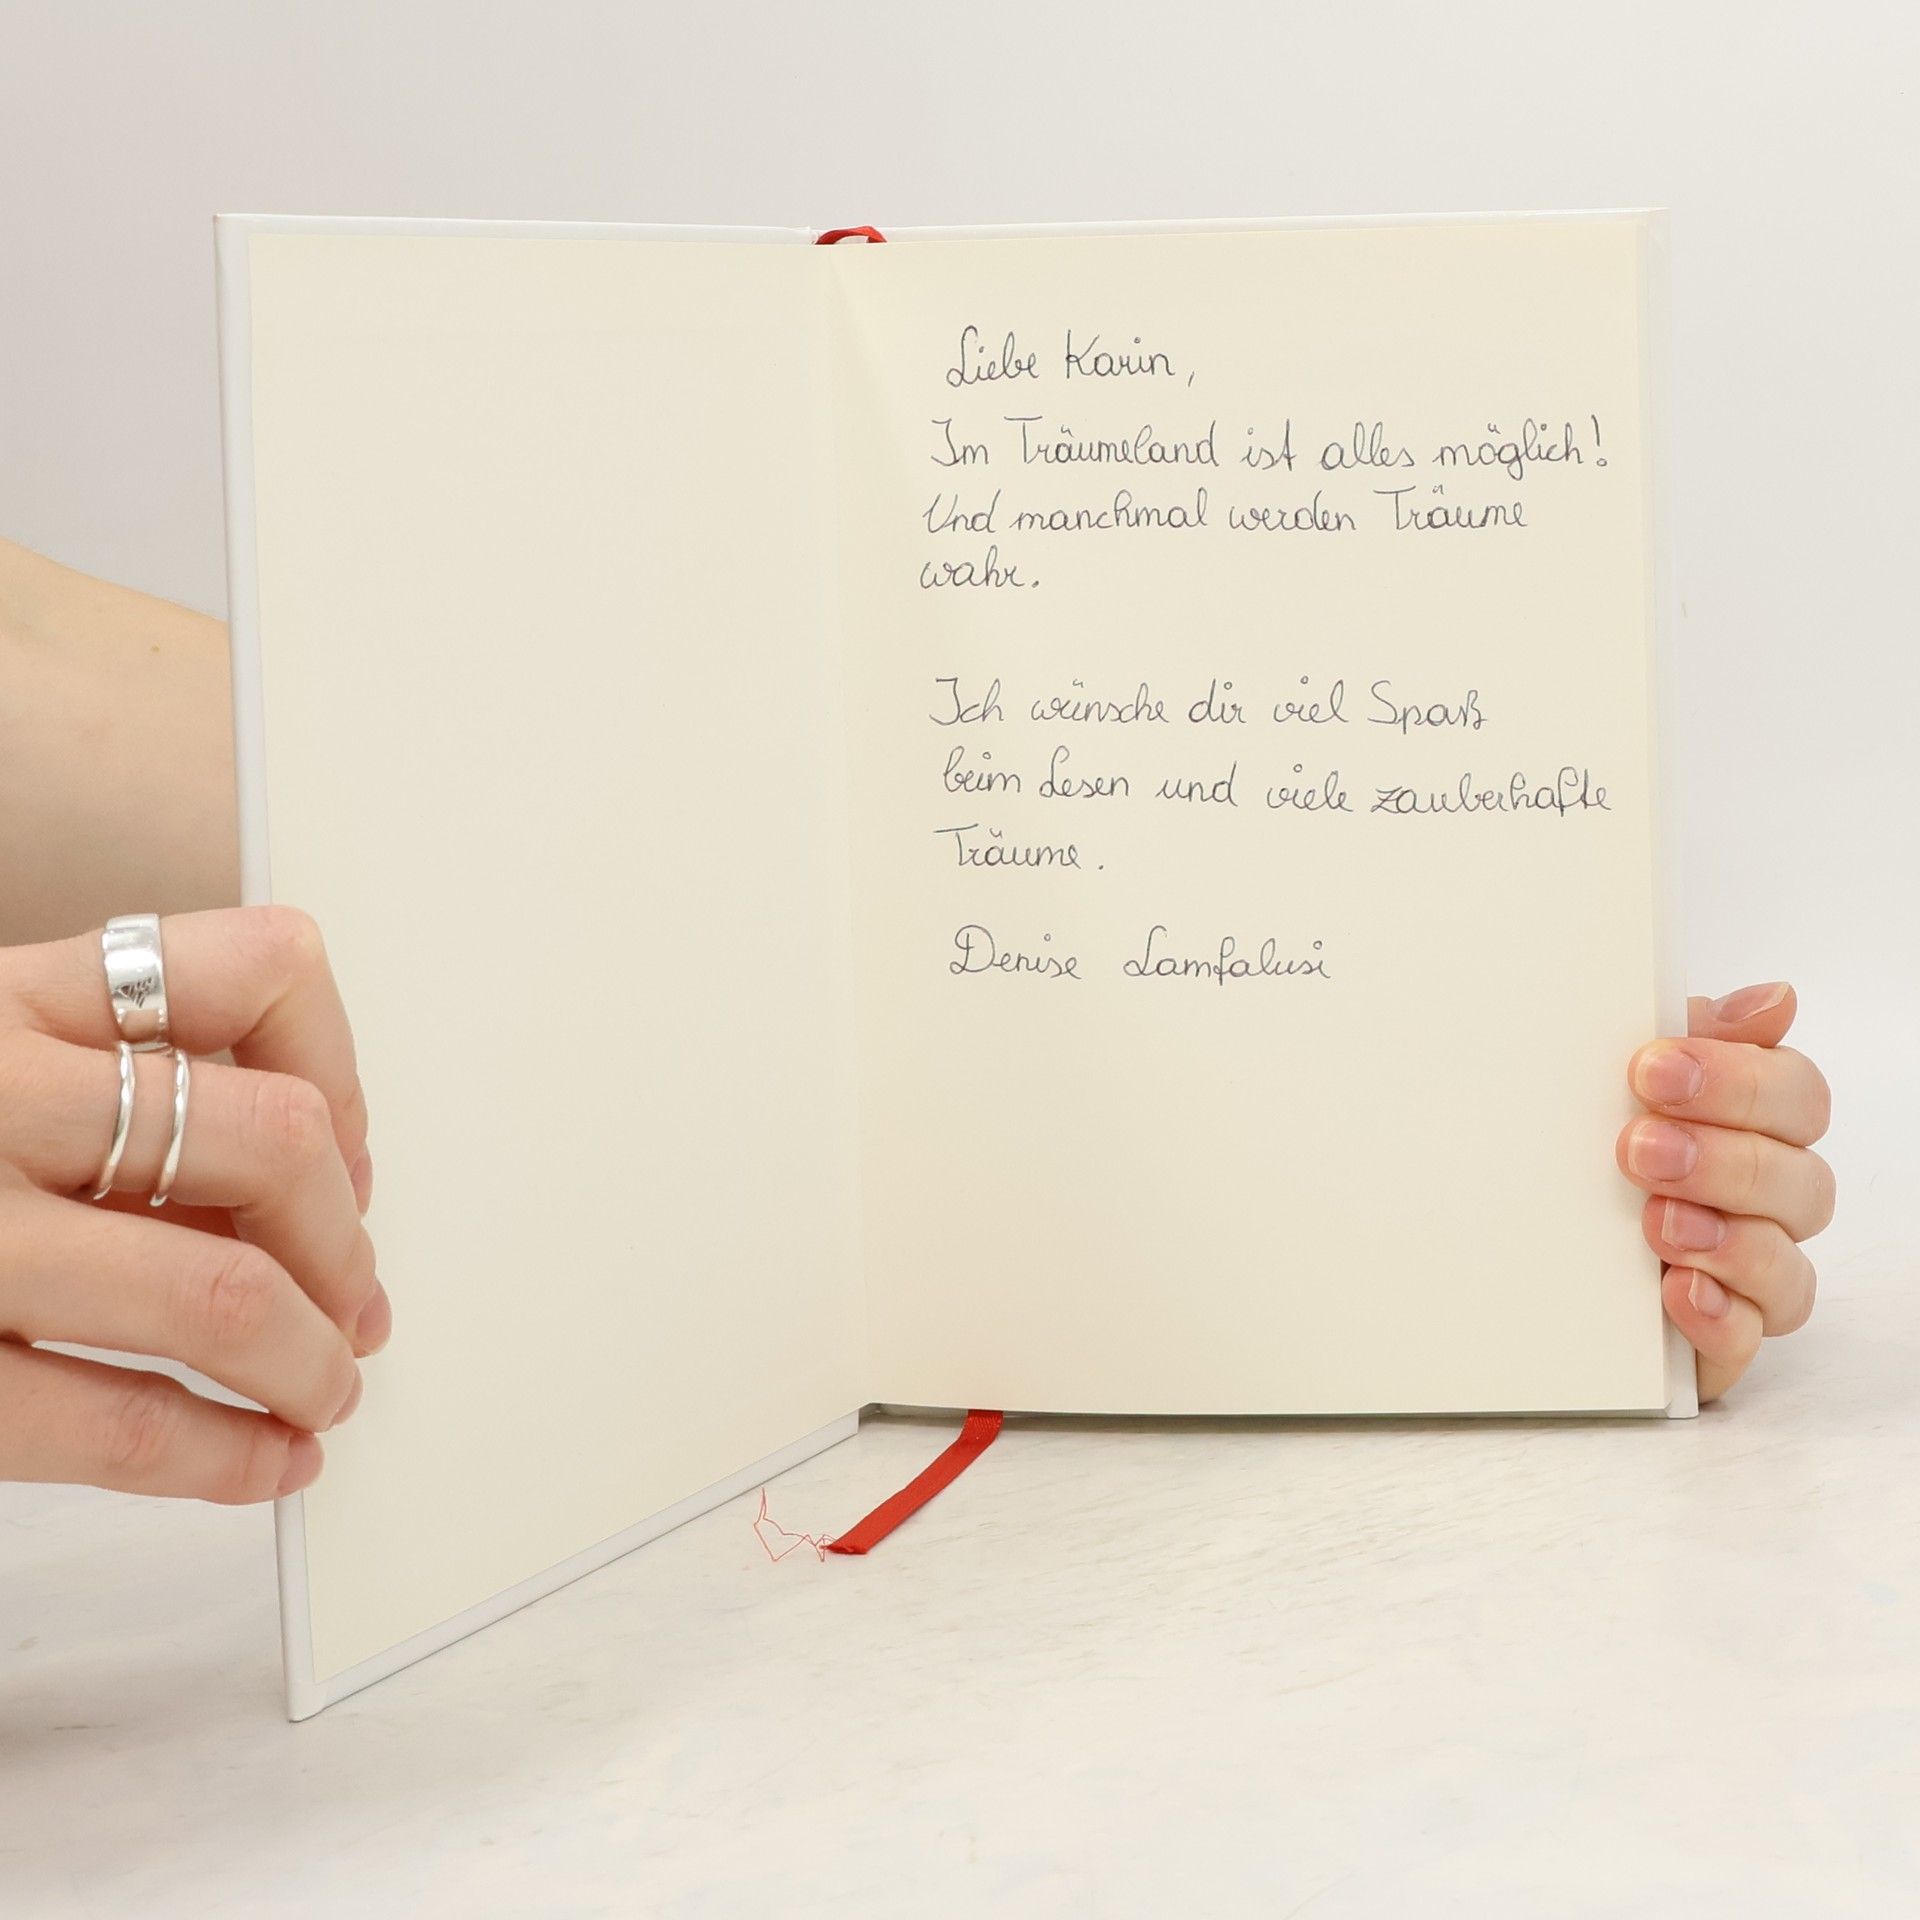 Liebe Karin,
Im Träumeland ist alles möglich!
Und manchmal werden Träume
wahr.
Ich wünsche dir viel Spaß
beim Lesen und viele zauberhafte
Träume.
Denise Lamfalusi